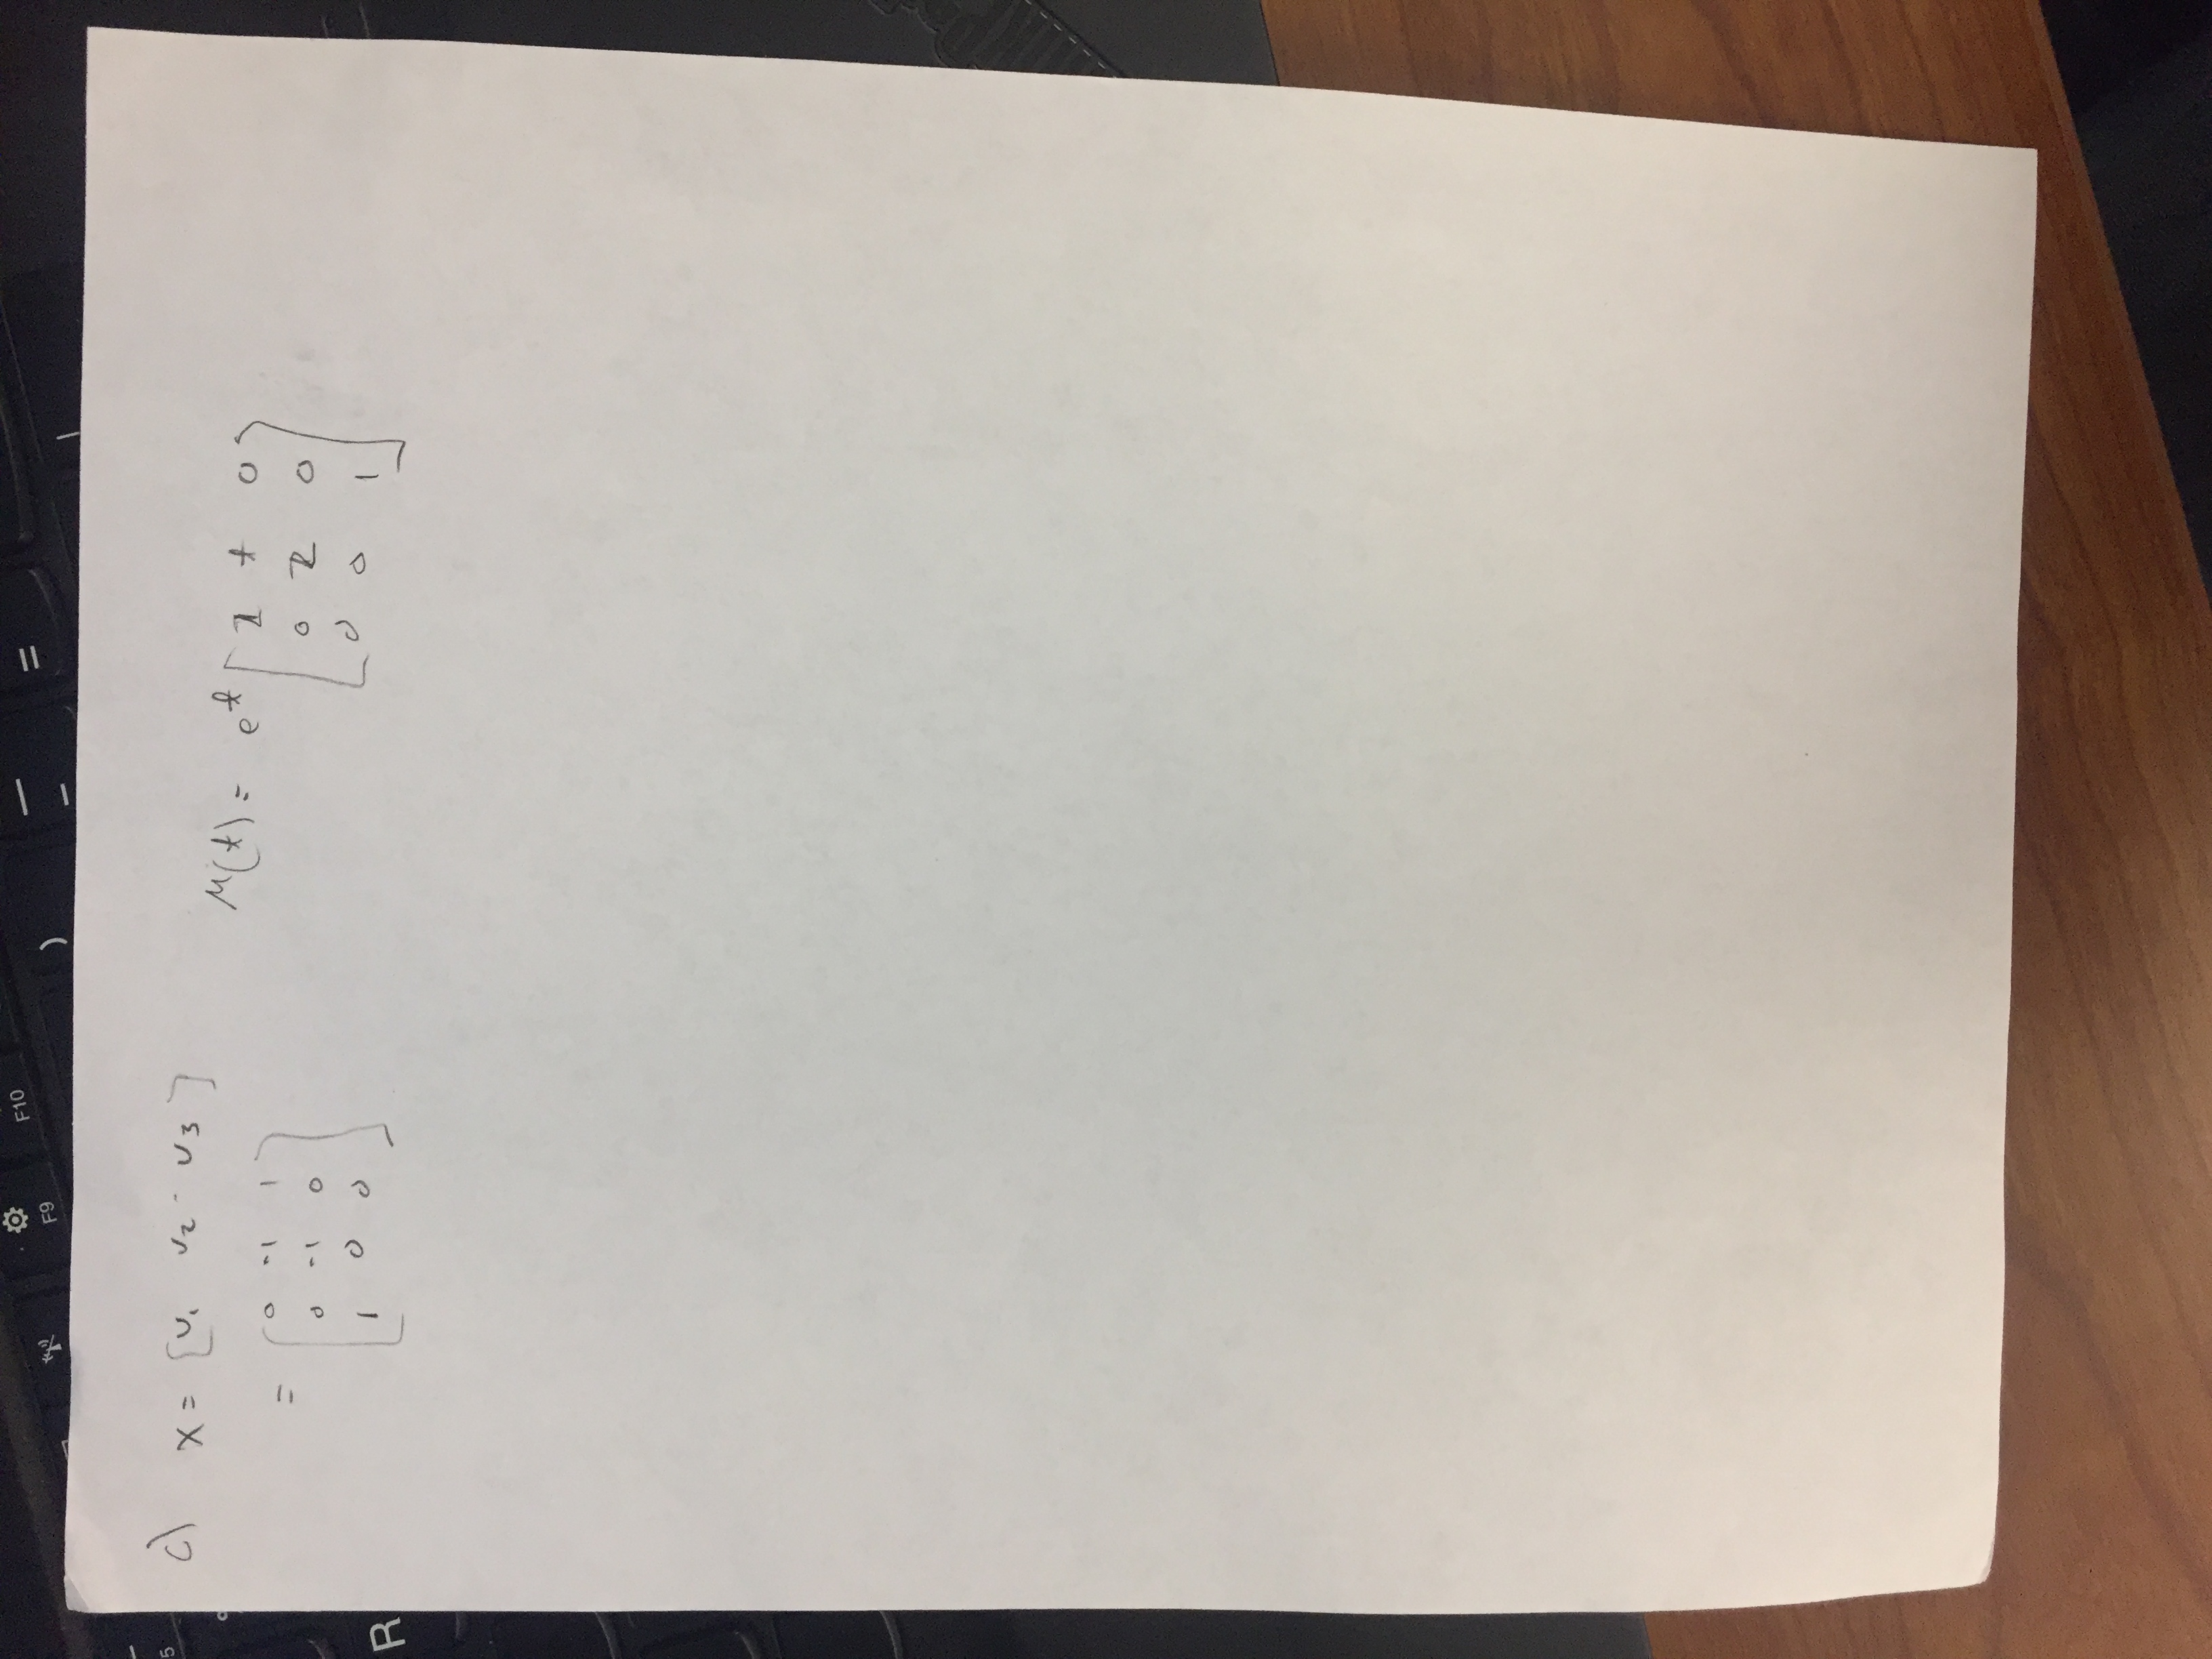 F9 F10 )
— –
=
5
R
c) x = [v₁ v₂ v₃]
= [0 -1 1
0 -1 0
1 0 0]
M(t) = e^t [1 t 0
0 1 0
0 0 1]